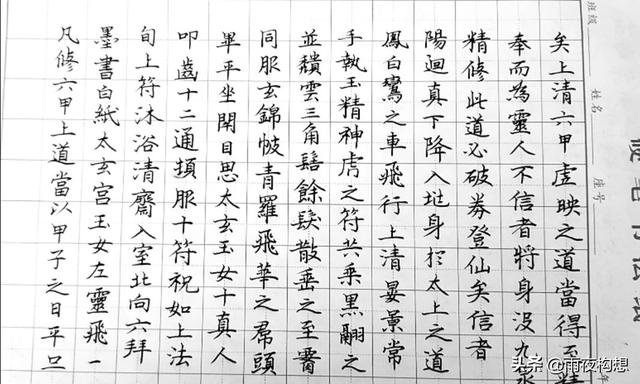 凡修六甲上道當以甲子之日平旦
墨書白紙太玄宮玉女左靈飛一
旬上符沐浴清齋入室北向六拜
叩齒十二通頓服十符祝如上法
畢平坐閉目思太玄玉女十真人
同服玄錦帔青羅飛華之帬頭
並穨雲三角髻餘髮散垂之至𦝫
手執玉精神虎之符共乘黑翮之
鳳白鸞之車飛行上清晏景常
陽迴真下降入𡊥身於太上之道
精修此道必破券登仙矣信者
奉而為靈人不信者將身没九泉
矣上清六甲虛映之道當得至精
班级
姓名
座号
年
头条 @雨夜构想